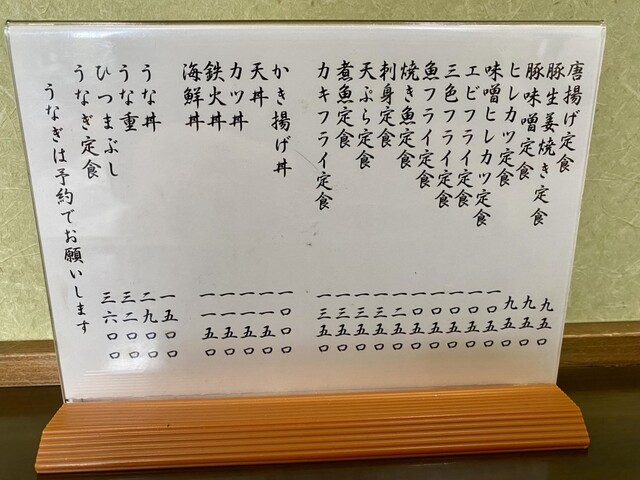 唐揚げ定食 九五〇
豚生姜焼き定食 九五〇
豚味噌定食 九五〇
ヒレカツ定食 一〇五〇
味噌ヒレカツ定食 一〇五〇
エビフライ定食 一〇五〇
三色フライ定食 一〇五〇
魚フライ定食 一〇五〇
焼き魚定食 一二五〇
刺身定食 一三五〇
天ぷら定食 一三五〇
煮魚定食 一三五〇
カキフライ定食 一三五〇
かき揚げ丼 一〇〇〇
天丼 一一五〇
カツ丼 一一五〇
鉄火丼 一一五〇
海鮮丼 一一五〇
うな丼 一五〇〇
うな重 二九〇〇
ひつまぶし 三二〇〇
うなぎ定食 三六〇〇
うなぎは予約でお願いします